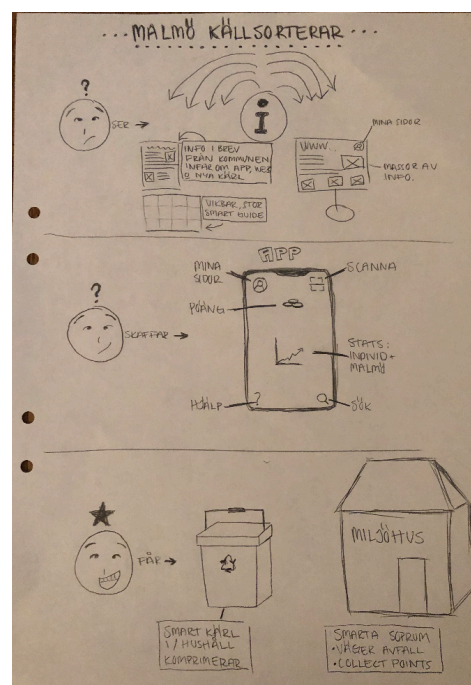 ...MALMÖ KÄLLSORTERAR...
?
SER →
i
INFO I BREV
FRÅN KOMMUNEN
INFÖR OM APP, WEB
& NYA KÄRL
VIKBAR, STOR
SMART GUIDE
WWW...
MINA SIDOR
MASSOR AV
INFO.
APP
?
SKAFFAR →
MINA
SIDOR
SCANNA
POÄNG
STATS:
INDIVID+
MALMÖ
?
HJÄLP
SÖK
FÅR →
MILJÖHUS
SMART KÄRL
1/HUSHÅLL
KOMPRIMERAR
SMARTA SOPRUM
•VÄGER AVFALL
•COLLECT POINTS